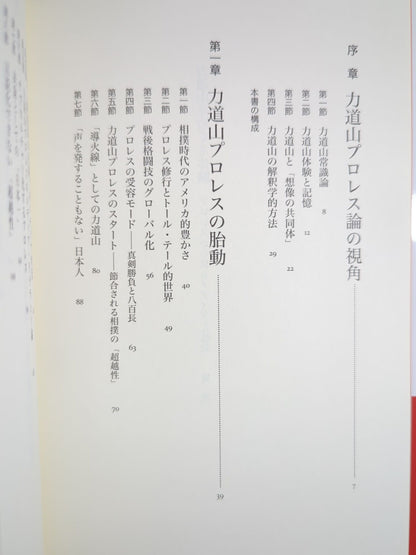 序章 力道山プロレス論の視角 7
第一節 力道山常識論 8
第二節 力道山体験と記憶 12
第三節 力道山と「想像の共同体」 22
第四節 力道山の解釈学的方法 29
本書の構成
第一章 力道山プロレスの胎動 39
第一節 相撲時代のアメリカ的豊かさ 40
第二節 プロレス修行とトール・テール的世界 49
第三節 戦後格闘技のグローバル化 56
第四節 プロレスの受容モード──真剣勝負と八百長 63
第五節 力道山プロレスのスタート──節合される相撲の「超越性」 70
第六節 「導火線」としての力道山 80
第七節 「声を発することもない」日本人 88